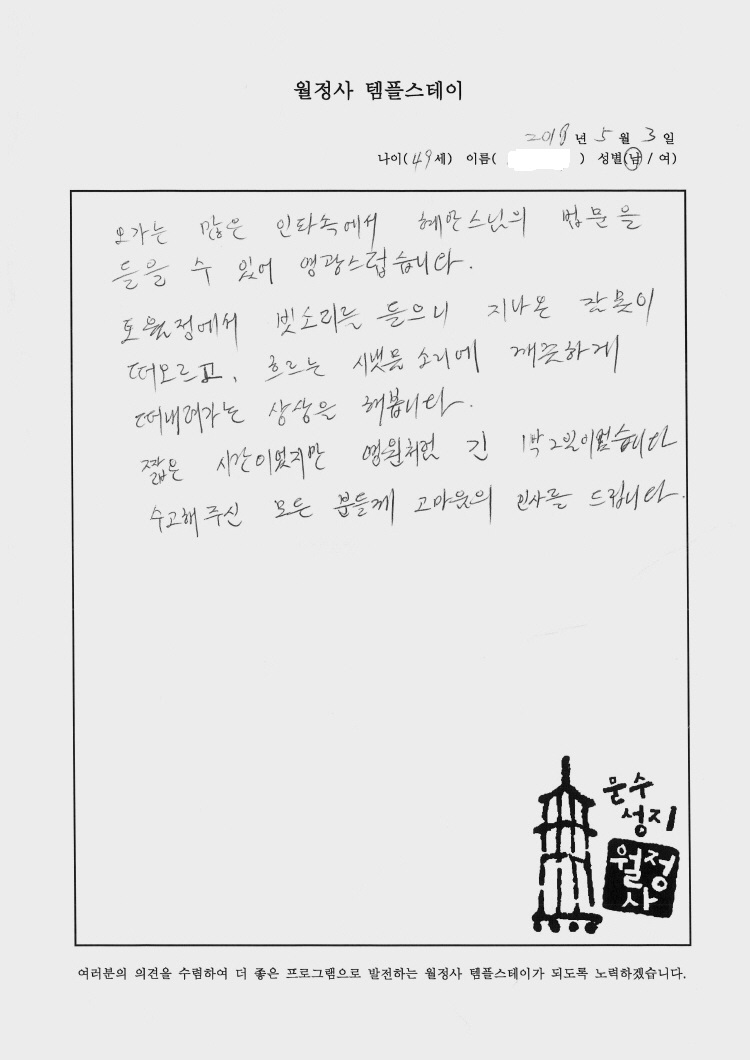 월정사 템플스테이
2018 년 5 월 3 일
나이(49세) 이름( ) 성별(남/여)
오가는 많은 인파속에서 혜안스님의 법문을
들을 수 있어 영광스럽습니다.
토월정에서 빗소리를 들으니 지나온 잘못이
떠오르고, 흐르는 시냇물 소리에 깨끗하게
떠내려가는 상상을 해봅니다.
짧은 시간이었지만 영원처럼 긴 1박 2일이었습니다
수고해 주신 모든 분들께 고마움의 인사를 드립니다.
문수
성지
월정
사
여러분의 의견을 수렴하여 더 좋은 프로그램으로 발전하는 월정사 템플스테이가 되도록 노력하겠습니다.